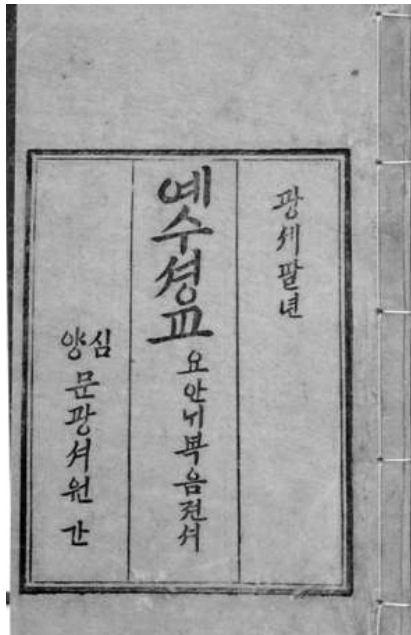 광세팔년
예수셩교
요안내복음젼셔
심양
문광셔원 간